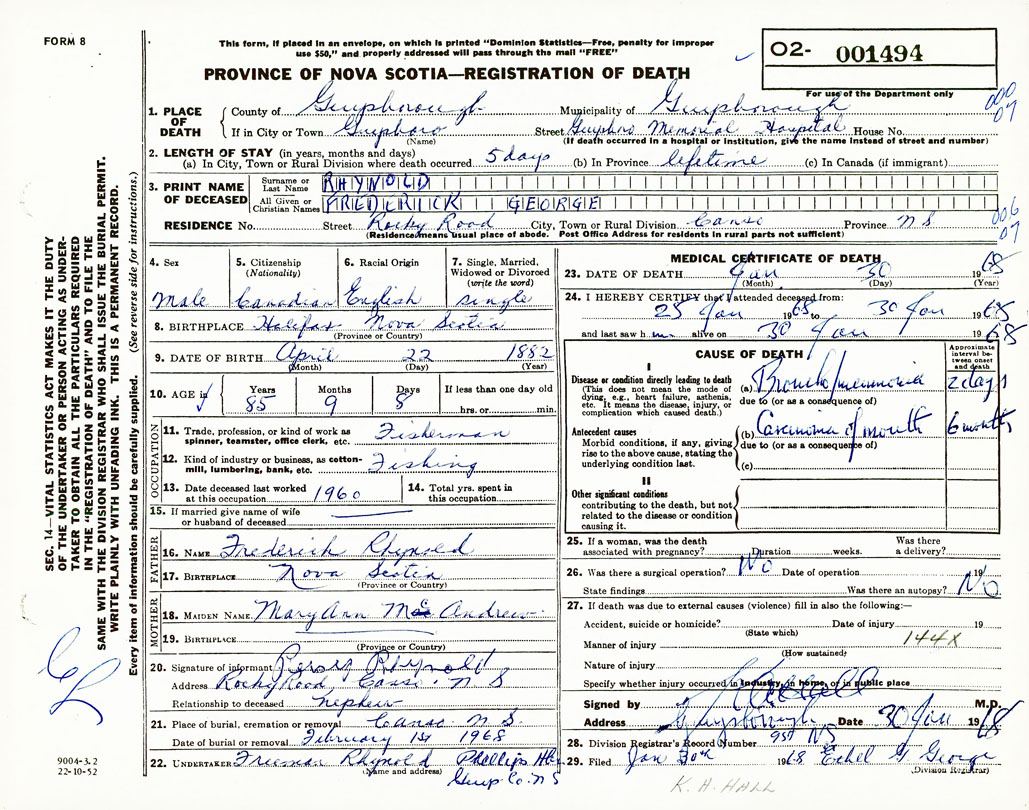 FORM 8
This form, if placed in an envelope, on which is printed "Dominion Statistics—Free, penalty for improper
use $50," and properly addressed will pass through the mail "FREE"
O2- 001494
For use of the Department only
PROVINCE OF NOVA SCOTIA—REGISTRATION OF DEATH
000
07
1. PLACE OF DEATH
County of Guysborough Municipality of Guysborough
If in City or Town Guysboro Street Guysboro Memorial Hospital House No.
(Name) (If death occurred in a hospital or institution, give the name instead of street and number)
2. LENGTH OF STAY (in years, months and days)
(a) In City, Town or Rural Division where death occurred 5 days (b) In Province lifetime (c) In Canada (if immigrant)
3. PRINT NAME OF DECEASED
Surname or Last Name RHYNOLD
All Given or Christian Names FREDERICK GEORGE
006
07
RESIDENCE No. Street Rocky Road City, Town or Rural Division Canso Province N S
(Residence means usual place of abode. Post Office Address for residents in rural parts not sufficient)
4. Sex
Male
5. Citizenship
(Nationality)
Canadian
6. Racial Origin
English
7. Single, Married,
Widowed or Divorced
(write the word)
single
8. BIRTHPLACE Halifax Nova Scotia
(Province or Country)
9. DATE OF BIRTH April 22 1882
(Month) (Day) (Year)
10. AGE in
Years Months Days If less than one day old
85 9 8 hrs. or min.
OCCUPATION
11. Trade, profession, or kind of work as
spinner, teamster, office clerk, etc. Fisherman
12. Kind of industry or business, as cotton-
mill, lumbering, bank, etc. Fishing
13. Date deceased last worked
at this occupation 1960
14. Total yrs. spent in
this occupation
15. If married give name of wife
or husband of deceased
FATHER
16. NAME Frederick Rhynold
17. BIRTHPLACE Nova Scotia
(Province or Country)
MOTHER
18. MAIDEN NAME Mary Ann Andrew
19. BIRTHPLACE
(Province or Country)
20. Signature of informant Rhynold
Address Rocky Road Canso. N S
Relationship to deceased nephew
21. Place of burial, cremation or removal Canso N S.
Date of burial or removal February 1st 1968
22. UNDERTAKER Freeman Rhynold Phillips
(Name and address)
Guys Co. N S
MEDICAL CERTIFICATE OF DEATH
23. DATE OF DEATH Jan 30 1968
(Month) (Day) (Year)
24. I HEREBY CERTIFY that I attended deceased from:
25 Jan 1968 to 30 Jan 1968
and last saw him alive on 30 Jan 1968
CAUSE OF DEATH
Approximate
interval be-
tween onset
and death
I
Disease or condition directly leading to death
(This does not mean the mode of
dying, e.g., heart failure, asthenia,
etc. It means the disease, injury, or
complication which caused death.)
(a) Bronchopneumonia 2 days
due to (or as a consequence of)
Antecedent causes
Morbid conditions, if any, giving
rise to the above cause, stating the
underlying condition last.
(b) Carcinoma of mouth 6 months
due to (or as a consequence of)
(c)
II
Other significant conditions
contributing to the death, but not
related to the disease or condition
causing it.
25. If a woman, was the death
associated with pregnancy? Duration weeks. Was there
a delivery?
26. Was there a surgical operation? No Date of operation 19
State findings Was there an autopsy? No
27. If death was due to external causes (violence) fill in also the following:—
Accident, suicide or homicide? Date of injury 19
(State which)
144X
Manner of injury
(How sustained)
Nature of injury
Specify whether injury occurred in industry, in home, or in public place
Signed by M.D.
Address Guysborough Date 30 Jan 1968
NS
28. Division Registrar's Record Number 951
29. Filed Jan 30th 1968 Ethel G. George
(Division Registrar)
K. A. HALL
SEC. 14—VITAL STATISTICS ACT MAKES IT THE DUTY
OF THE UNDERTAKER OR PERSON ACTING AS UNDER-
TAKER TO OBTAIN ALL THE PARTICULARS REQUIRED
IN THE "REGISTRATION OF DEATH" AND TO FILE THE
SAME WITH THE DIVISION REGISTRAR WHO SHALL ISSUE THE BURIAL PERMIT.
WRITE PLAINLY WITH UNFADING INK. THIS IS A PERMANENT RECORD.
Every item of information should be carefully supplied. (See reverse side for instructions.)
9004-3.2
22-10-52